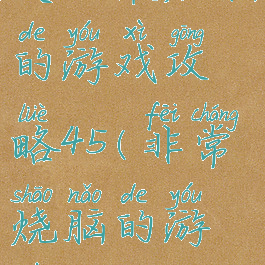 de yóu xì gōng
的游戏攻
lüè fēi cháng
略45(非常
shāo nǎo de yóu
烧脑的游